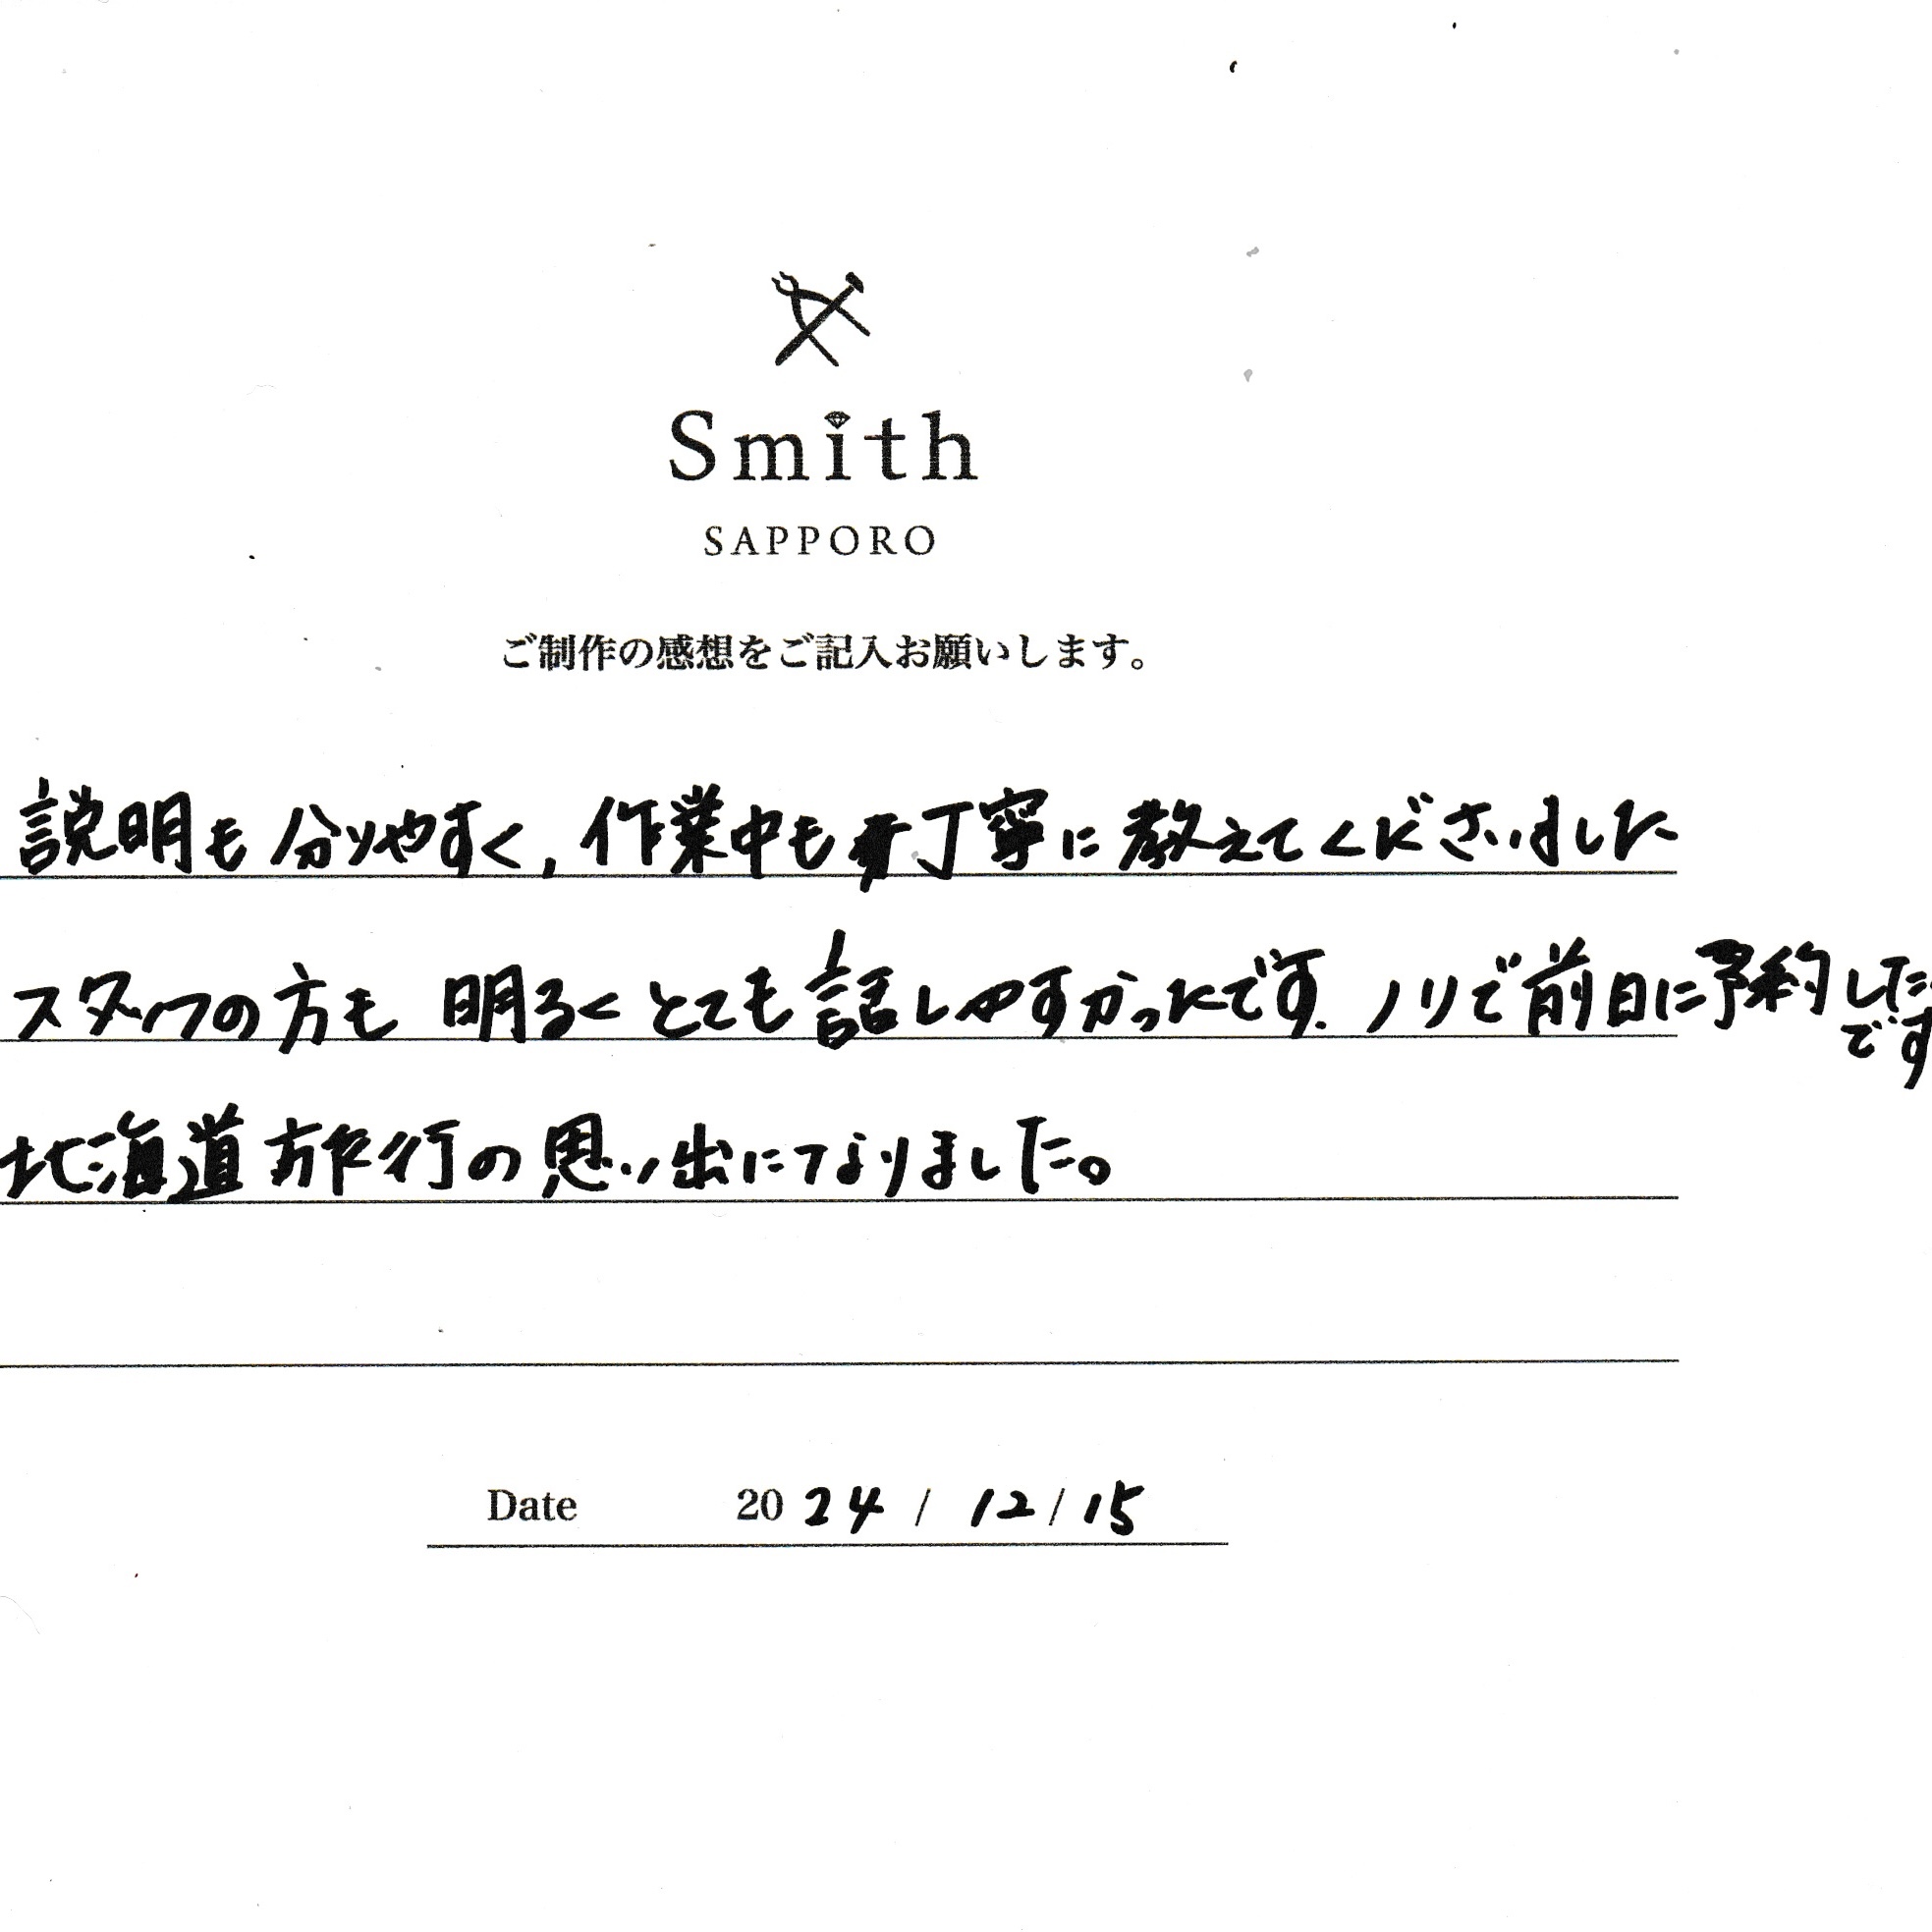 Smith
SAPPORO
ご制作の感想をご記入お願いします。
説明も分りやすく,作業中も丁寧に教えてくださいました
スタッフの方も明るくとても話しやすかったです.ノリで前日に予約した
です
北海道旅行の思い出になりました。
Date 2024 / 12 / 15